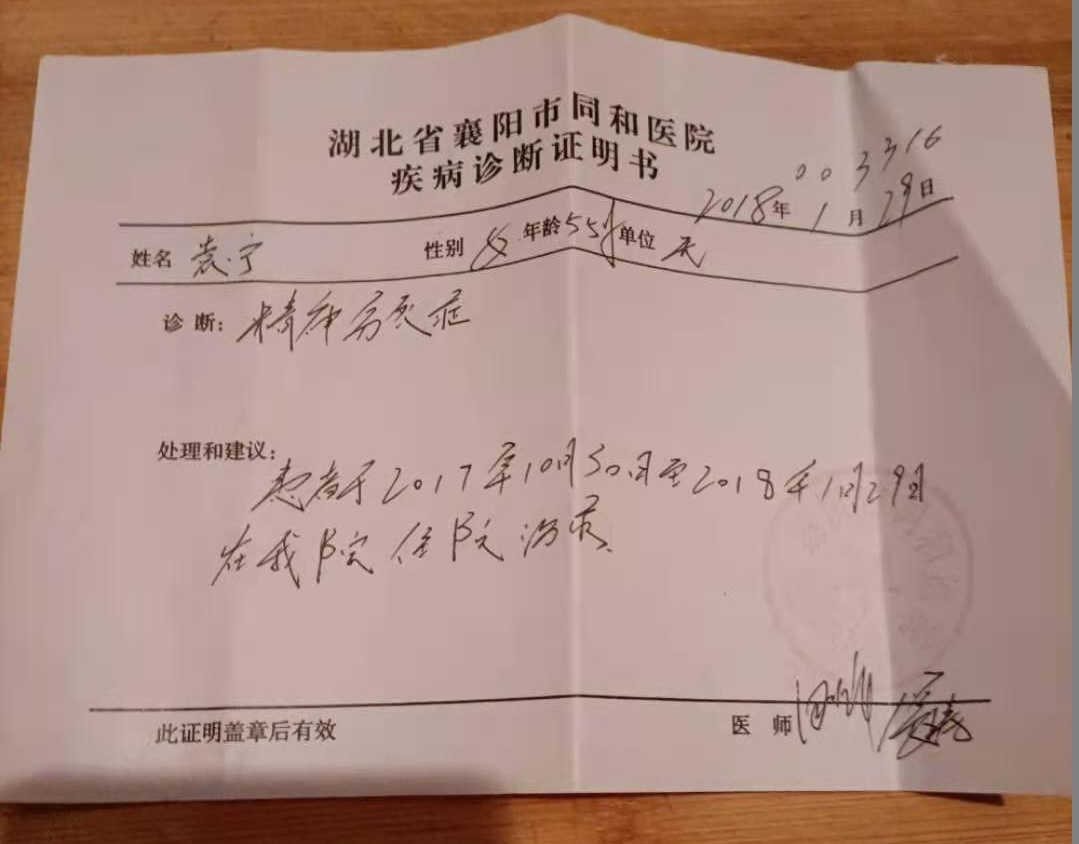 湖北省襄阳市同和医院
疾病诊断证明书
003316
2018年1月29日
姓名 袁宁 性别 女 年龄 55岁 单位 无
诊断: 精神分裂症
处理和建议:
患者于2017年10月30日至2018年1月29日
在我院住院治疗.
此证明盖章后有效 医师